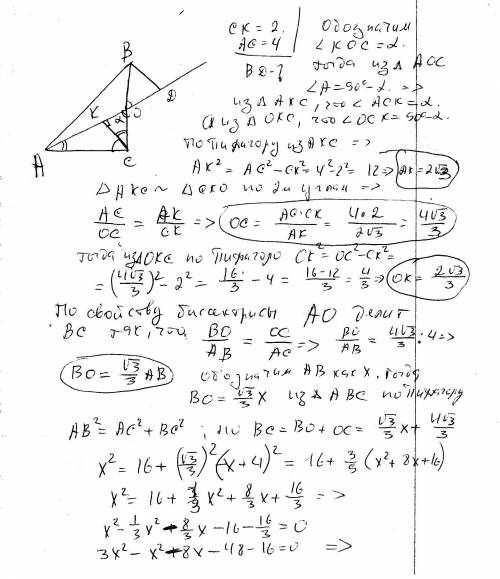 CK = 2.
AC = 4
BD - ?
Обозначим
∠KOC = α.
тогда из △AOC
∠A = 90° - α. =>
из △AKC, что ∠ACK = α.
а из △OKC, что ∠OCK = 90° - α.
B
D
O
K
α
A
C
По Пифагору из AKC =>
AK² = AC² - CK² = 4² - 2² = 12 => AK = 2√3
△AKC ~ △CKO по 2м углам =>
AC/OC = AK/CK => OC = AC·CK/AK = 4·2/2√3 = 4√3/3
тогда из △OKC по Пифагору OK² = OC² - CK² =
= (4√3/3)² - 2² = 16/3 - 4 = 16-12/3 = 4/3 => OK = 2√3/3
По свойству биссектрисы AO делит
BC так, что BO/AB = OC/AC => BO/AB = 4√3/3 : 4 =>
BO = √3/3 AB
обозначим AB как x, тогда
BO = √3/3 x из △ABC по Пифагору
AB² = AC² + BC² ; но BC = BO + OC = √3/3 x + 4√3/3
x² = 16 + (√3/3)² (x+4)² = 16 + 3/9 (x² + 8x + 16)
x² = 16 + 1/3 x² + 8/3 x + 16/3 =>
x² - 1/3 x² - 8/3 x - 16 - 16/3 = 0
3x² - x² - 8x - 48 - 16 = 0 =>